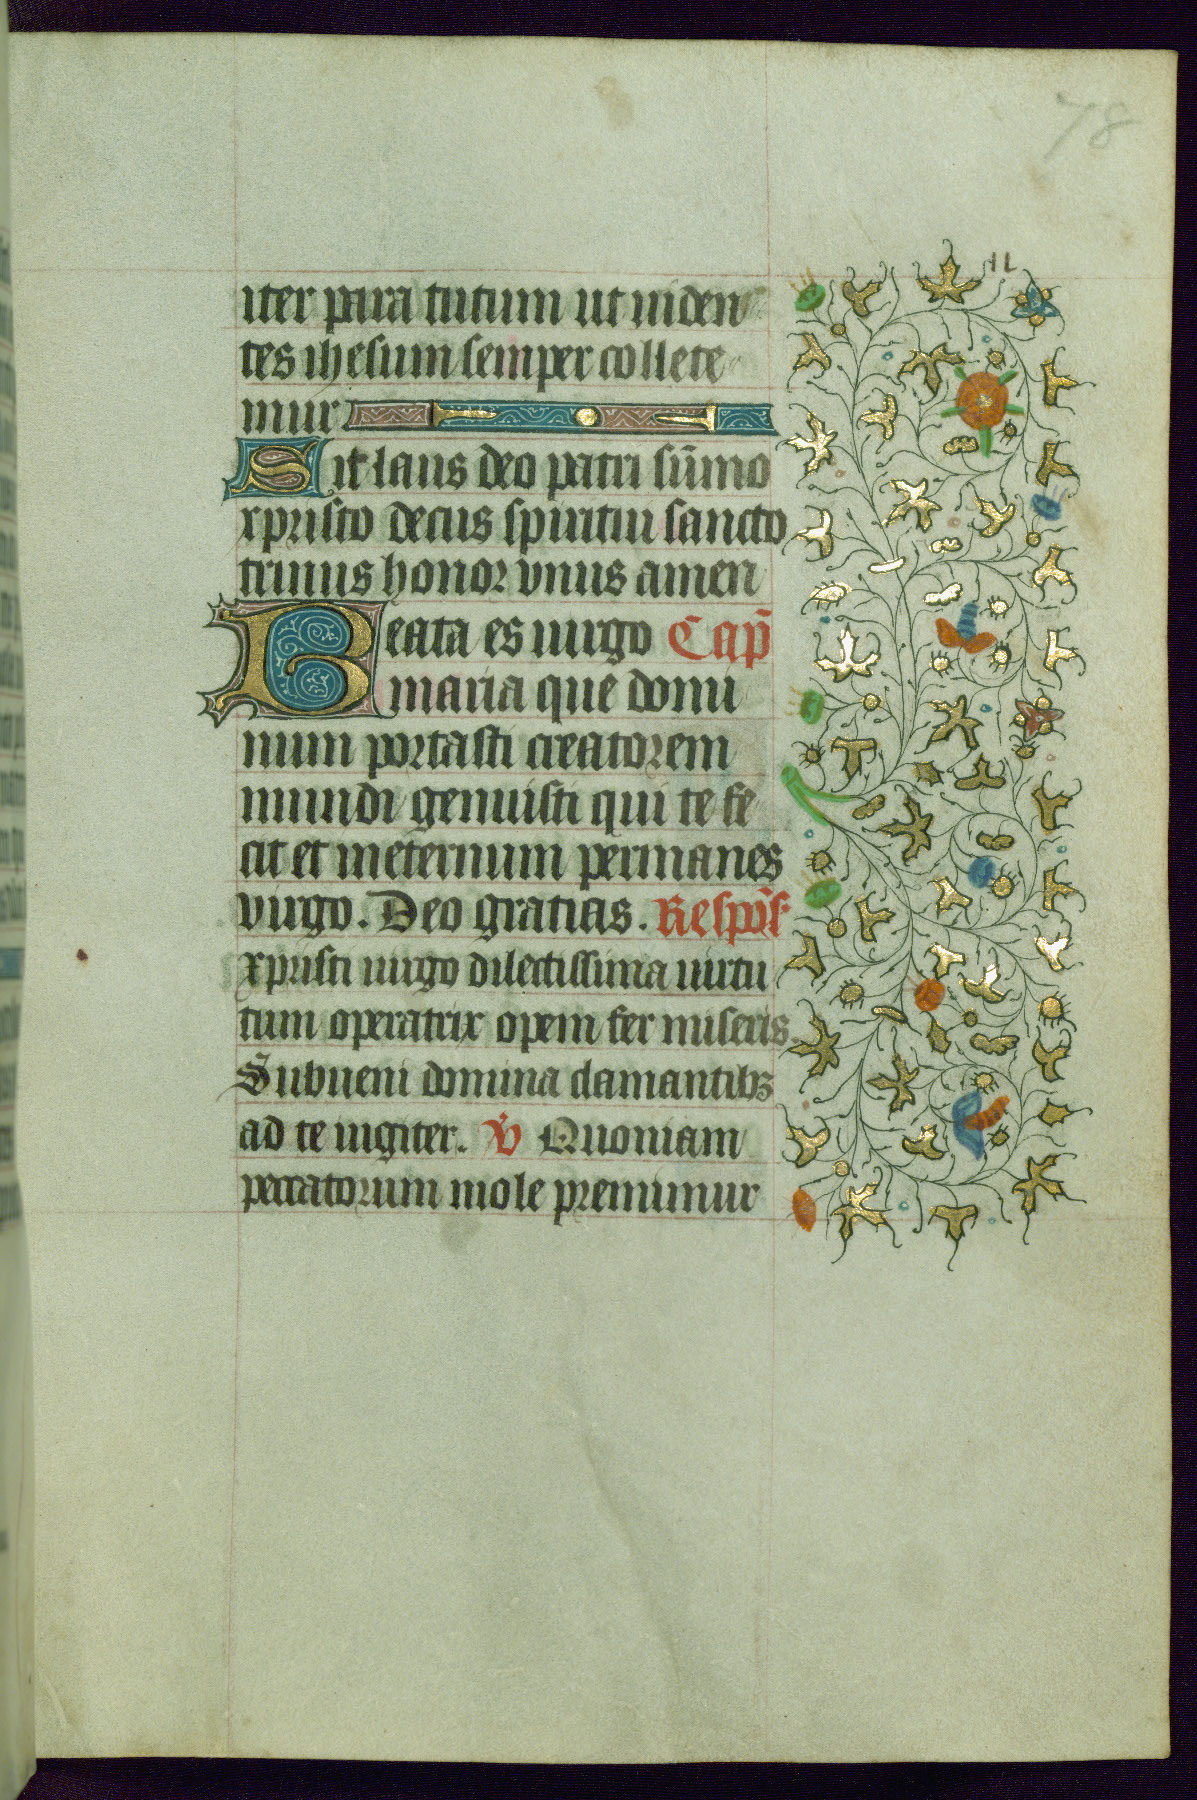 78
iter para tutum ut uiden
tes ihesum semper collete
mur
Sit laus deo patri sūmo
xpristo decus spiritui sancto
trinus honor vnus amen
Beata es uirgo Cap̄
maria que domi
num portasti creatorem
mundi genuisti qui te fe
cit et ineternum permanes
virgo. Deo gratias. Respōs.
xpristi uirgo dilectissima uirtu
tum operatrix opem fer miseris.
Subueni domina clamantibꝫ
ad te iugiter. V̄ Quoniam
peccatorum mole premimur